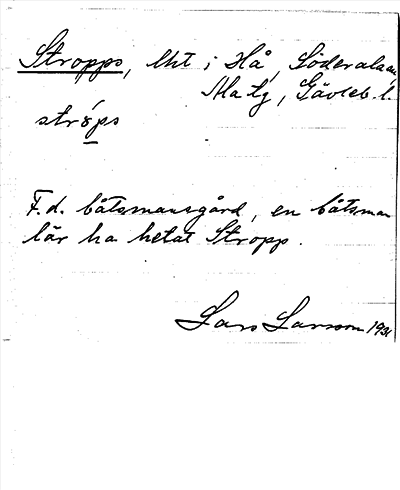 Stropps, lht i Hå, Söderala sn,
Ala tg, Gävleb. l.
strops
F.d. båtsmansgård, en båtsman
lär ha hetat Stropp.
Lars Larsson 1931